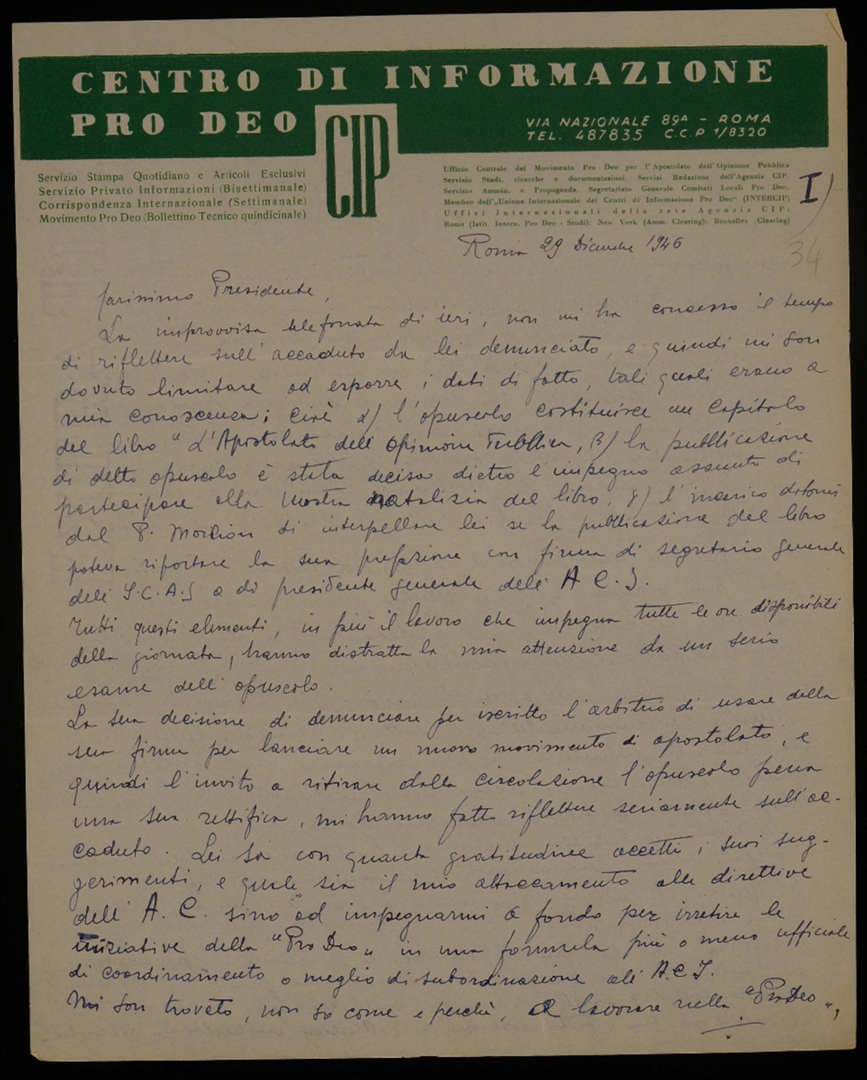 CENTRO DI INFORMAZIONE
PRO DEO
CIP
VIA NAZIONALE 89A - ROMA
TEL. 487835 C.C.P 1/8320
Servizio Stampa Quotidiano e Articoli Esclusivi
Servizio Privato Informazioni (Bisettimanale)
Corrispondenza Internazionale (Settimanale)
Movimento Pro Deo (Bollettino Tecnico quindicinale)
Ufficio Centrale del Movimento Pro Deo per l'Apostolato dell'Opinione Pubblica
Servizio Studi, ricerche e documentazioni. Servizi Redazione dell'Agenzia CIP.
Servizio Assmin. e Propaganda. Segretariato Generale Comitati Locali Pro Deo.
Membro dell'"Unione Internazionale dei Centri di Informazione Pro Deo" (INTERCIP)
Uffici Internazionali della rete Agenzia CIP:
Roma (Istit. Intern. Pro Deo - Studi); New York (Amm. Clearing). Bruxelles (Clearing)
I)
34
Roma 29 Dicembre 1946
Carissimo Presidente,
La improvvisa telefonata di ieri, non mi ha concesso il tempo
di riflettere sull'accaduto da lei denunciato, e quindi mi son
dovuto limitare ad esporre i dati di fatto, tali quali erano a
mia conoscenza; cioè α) l'opuscolo costituisce un capitolo
del libro "L'Apostolato dell'Opinione Pubblica, β) la pubblicazione
di detto opuscolo è stata decisa dietro l'impegno assunto di
partecipare alla Mostra natalizia del libro, γ) l'incarico datomi
dal P. Morlion di interpellare lei se la pubblicazione del libro
poteva riportare la sua prefazione con firma di segretario generale
dell' I.C.A.S o di presidente generale dell' A C. I.
Tutti questi elementi, in più il lavoro che impegna tutte le ore disponibili
della giornata, hanno distratta la mia attenzione da un serio
esame dell'opuscolo.
La sua decisione di denunciare per iscritto l'arbitrio di usare della
sua firma per lanciare un nuovo movimento di apostolato, e
quindi l'invito a ritirare dalla circolazione l'opuscolo pena
una sua rettifica, mi hanno fatto riflettere seriamente sull'ac-
caduto. Lei sa con quanta gratitudine accetti i suoi sug-
gerimenti, e quale sia il mio attaccamento alle direttive
dell' A. C. sino ad impegnarmi a fondo per irretire le
iniziative della "Pro Deo" in una formula più o meno ufficiale
di coordinamento o meglio di subordinazione all' A.C.I.
Mi son trovato, non so come e perchè, a lavorare nella "ProDeo",